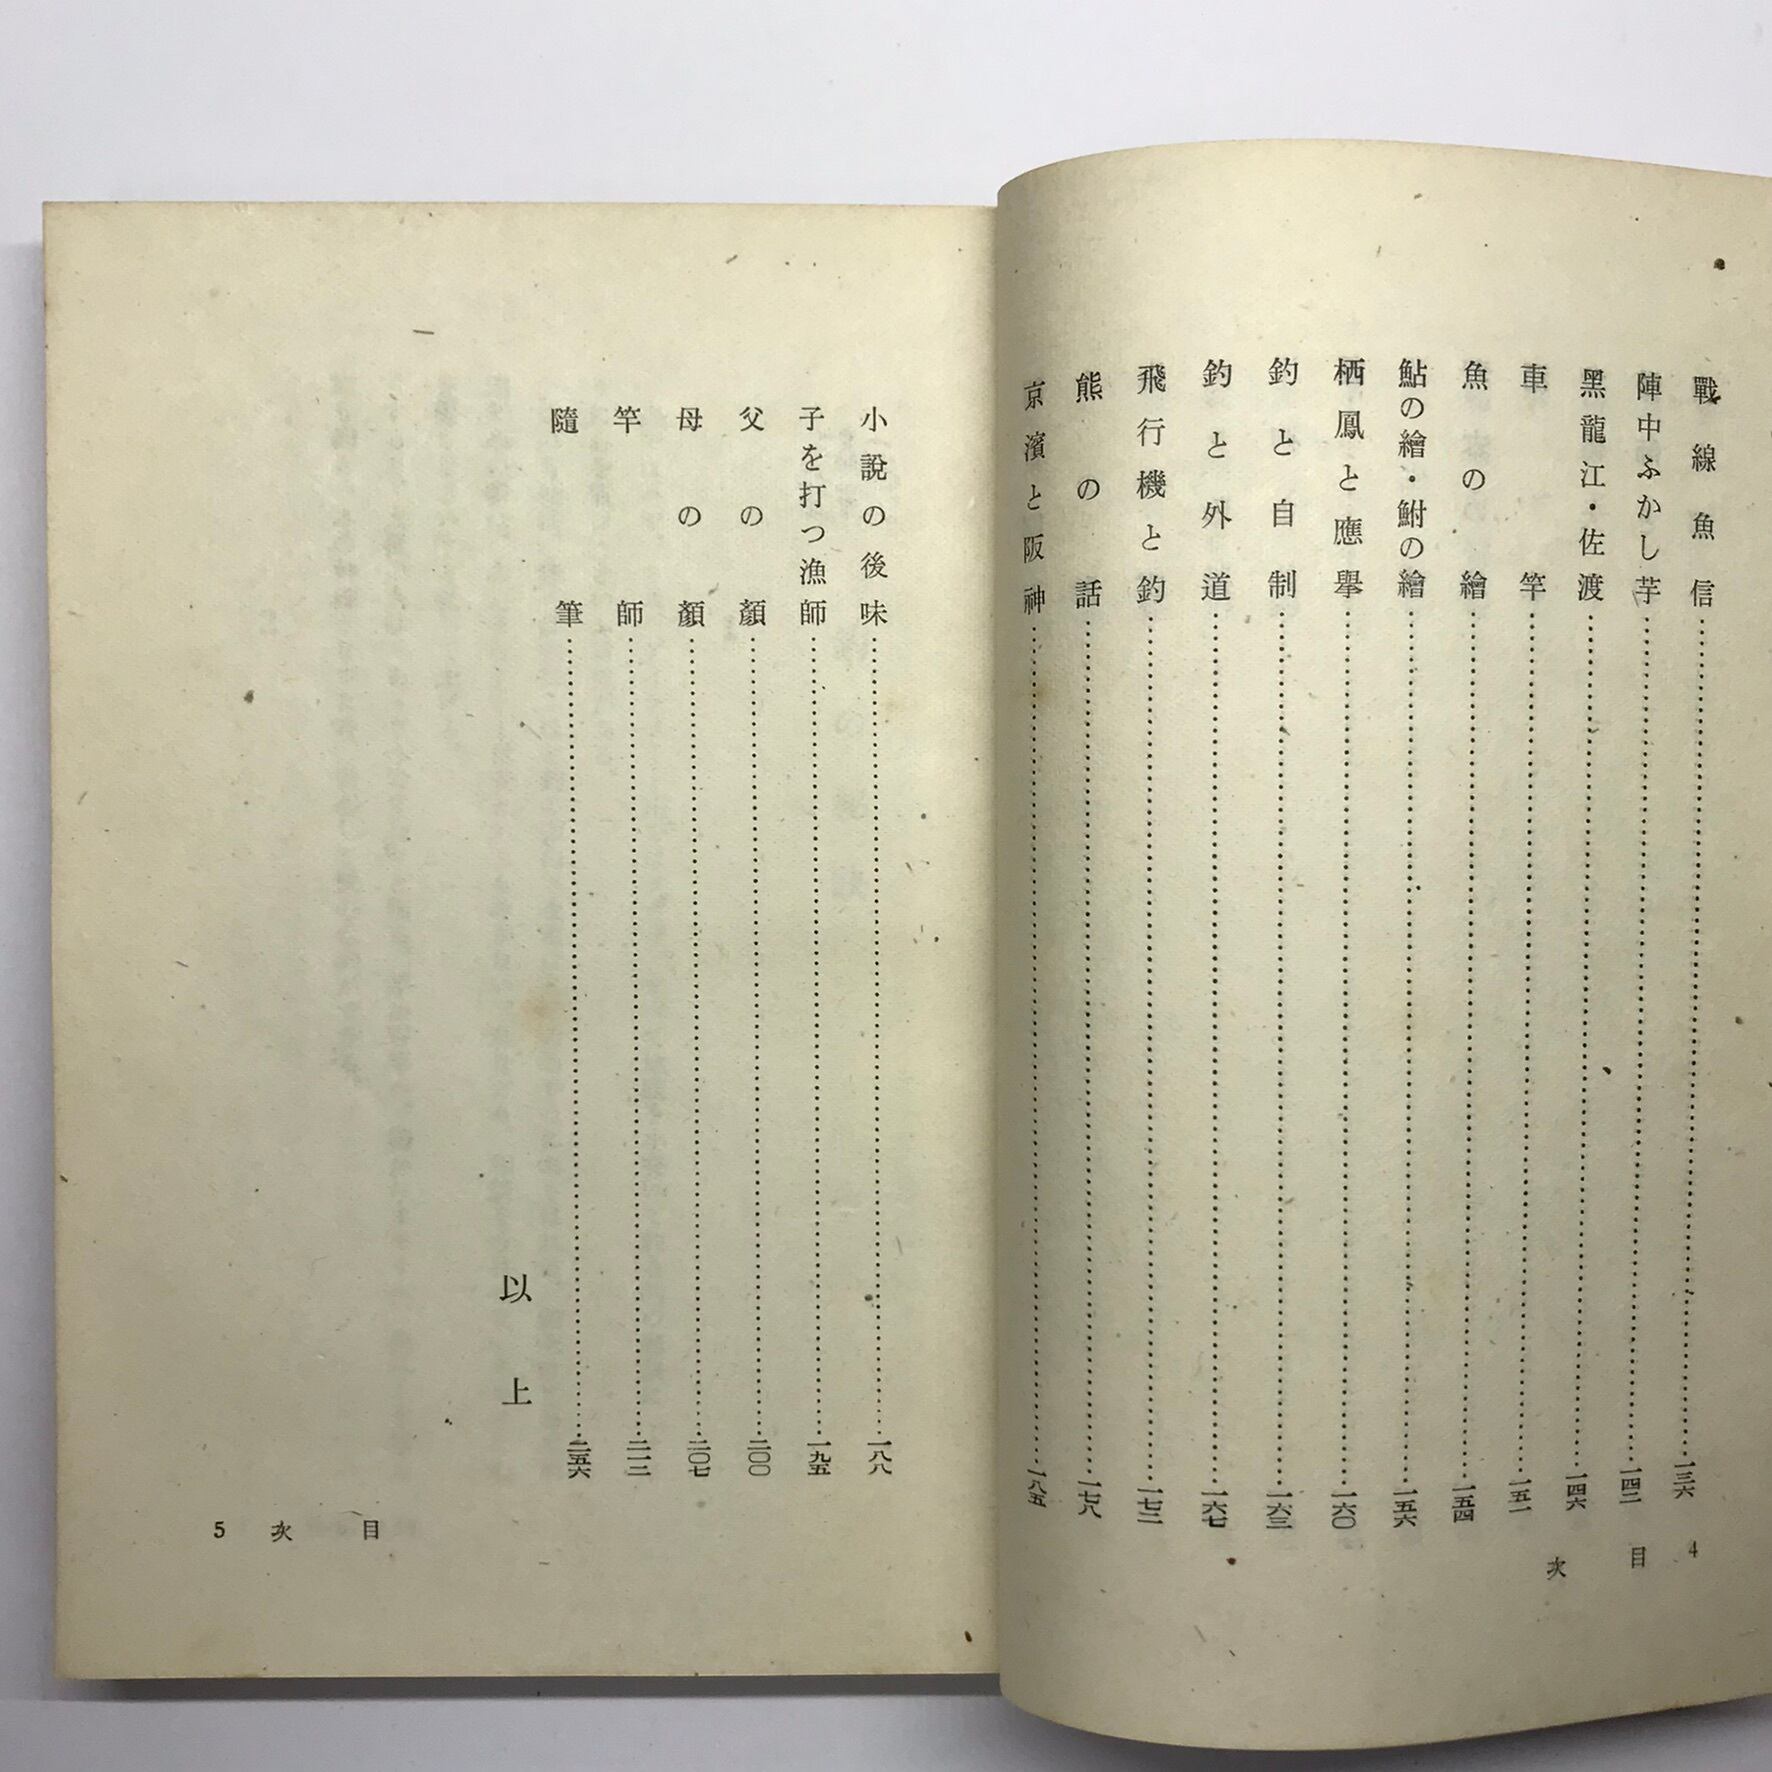 戰線魚信……一三六
陣中ふかし芋……一四二
黑龍江・佐渡……一四六
車竿……一五一
魚の繪……一五四
鮎の繪・鮒の繪……一五六
栖鳳と應擧……一六〇
釣と自制……一六三
釣と外道……一六七
飛行機と釣……一七二
熊の話……一七八
京濱と阪神……一八五
目次 4
小說の後味……一八八
子を打つ漁師……一九五
父の顏……二〇〇
母の顏……二〇七
竿師……二一二
隨筆……二五六
以上
5 次目